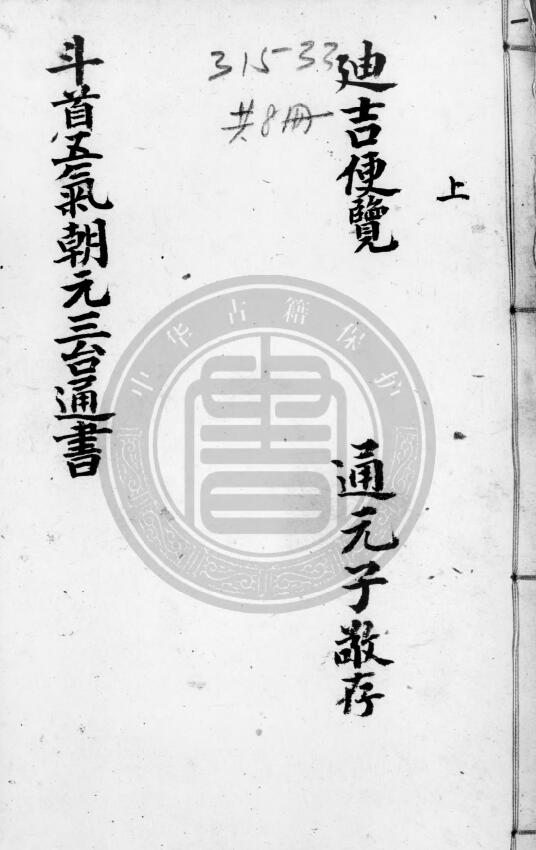 上
迪吉便覽
通元子敬存
315-33
共8冊
斗首五氣朝元三台通書
中华古籍保护